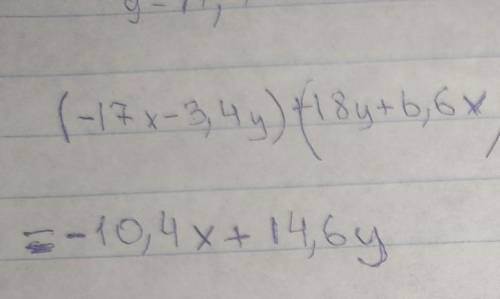 (-17x-3,4y)+(18y+6,6x)
=-10,4x+14,6y